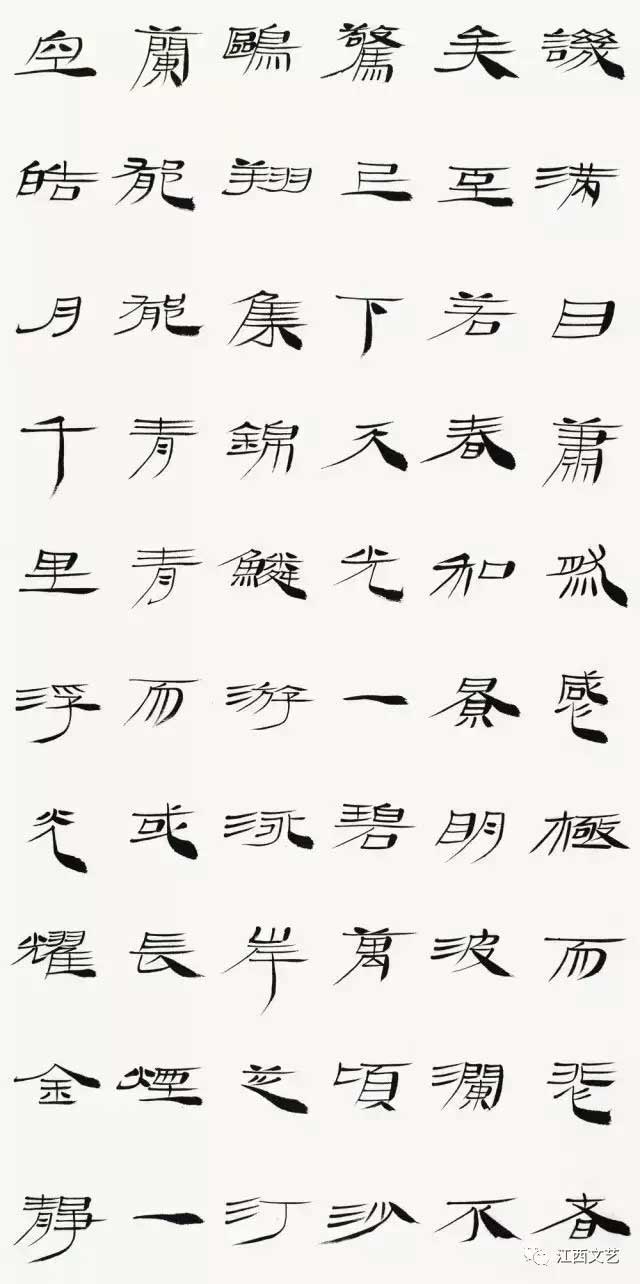 譏满目蕭然感極而悲者
矣至若春和景明波瀾不
驚已下天光一碧萬頃沙
鷗翔集錦鱗游泳岸芷汀
蘭郁郁青青而或長煙一
空皓月千里浮光耀金靜
江西文艺